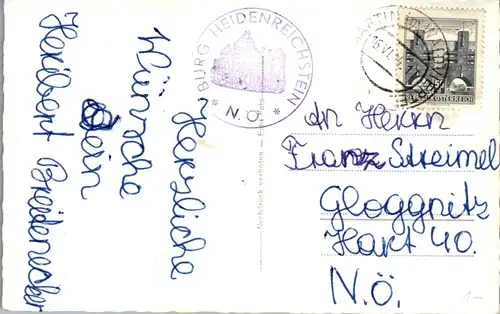 Herzliche
Wünsche
Dein
Heribert Breidenecker
* BURG HEIDENREICHSTEIN *
N.Ö.
Nachdruck verboten
ÖSTERREICH
An Herrn
Franz Streimel
Gloggnitz
Hart 40.
N.Ö.
1-